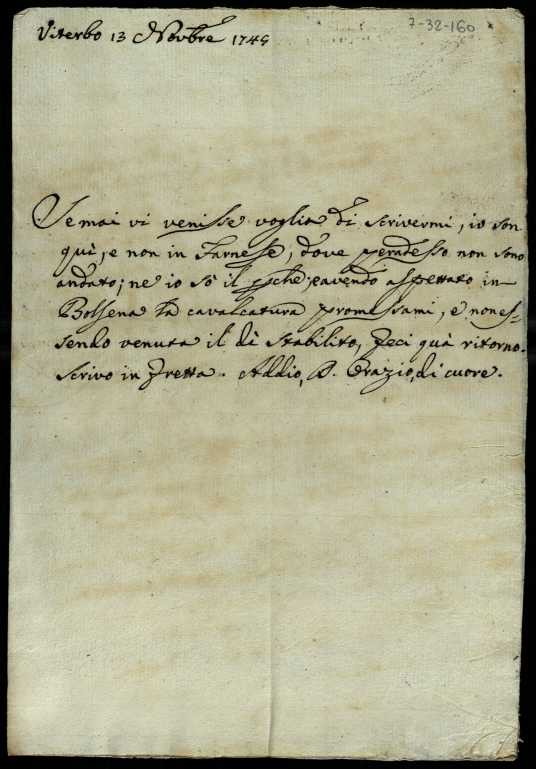 Viterbo 13 Novbre 1745
7-32-160
Se mai vi venisse voglia di scrivermi, io son
quì, e non in Farnese, dove peradesso non sono
andato; ne io sò il pche; avendo aspettato in
Bolsena la cavalcatura promessami, e non es-
sendo venuta il dì stabilito, feci quà ritorno.
scrivo in fretta. Addio, D. Orazio, di cuore.